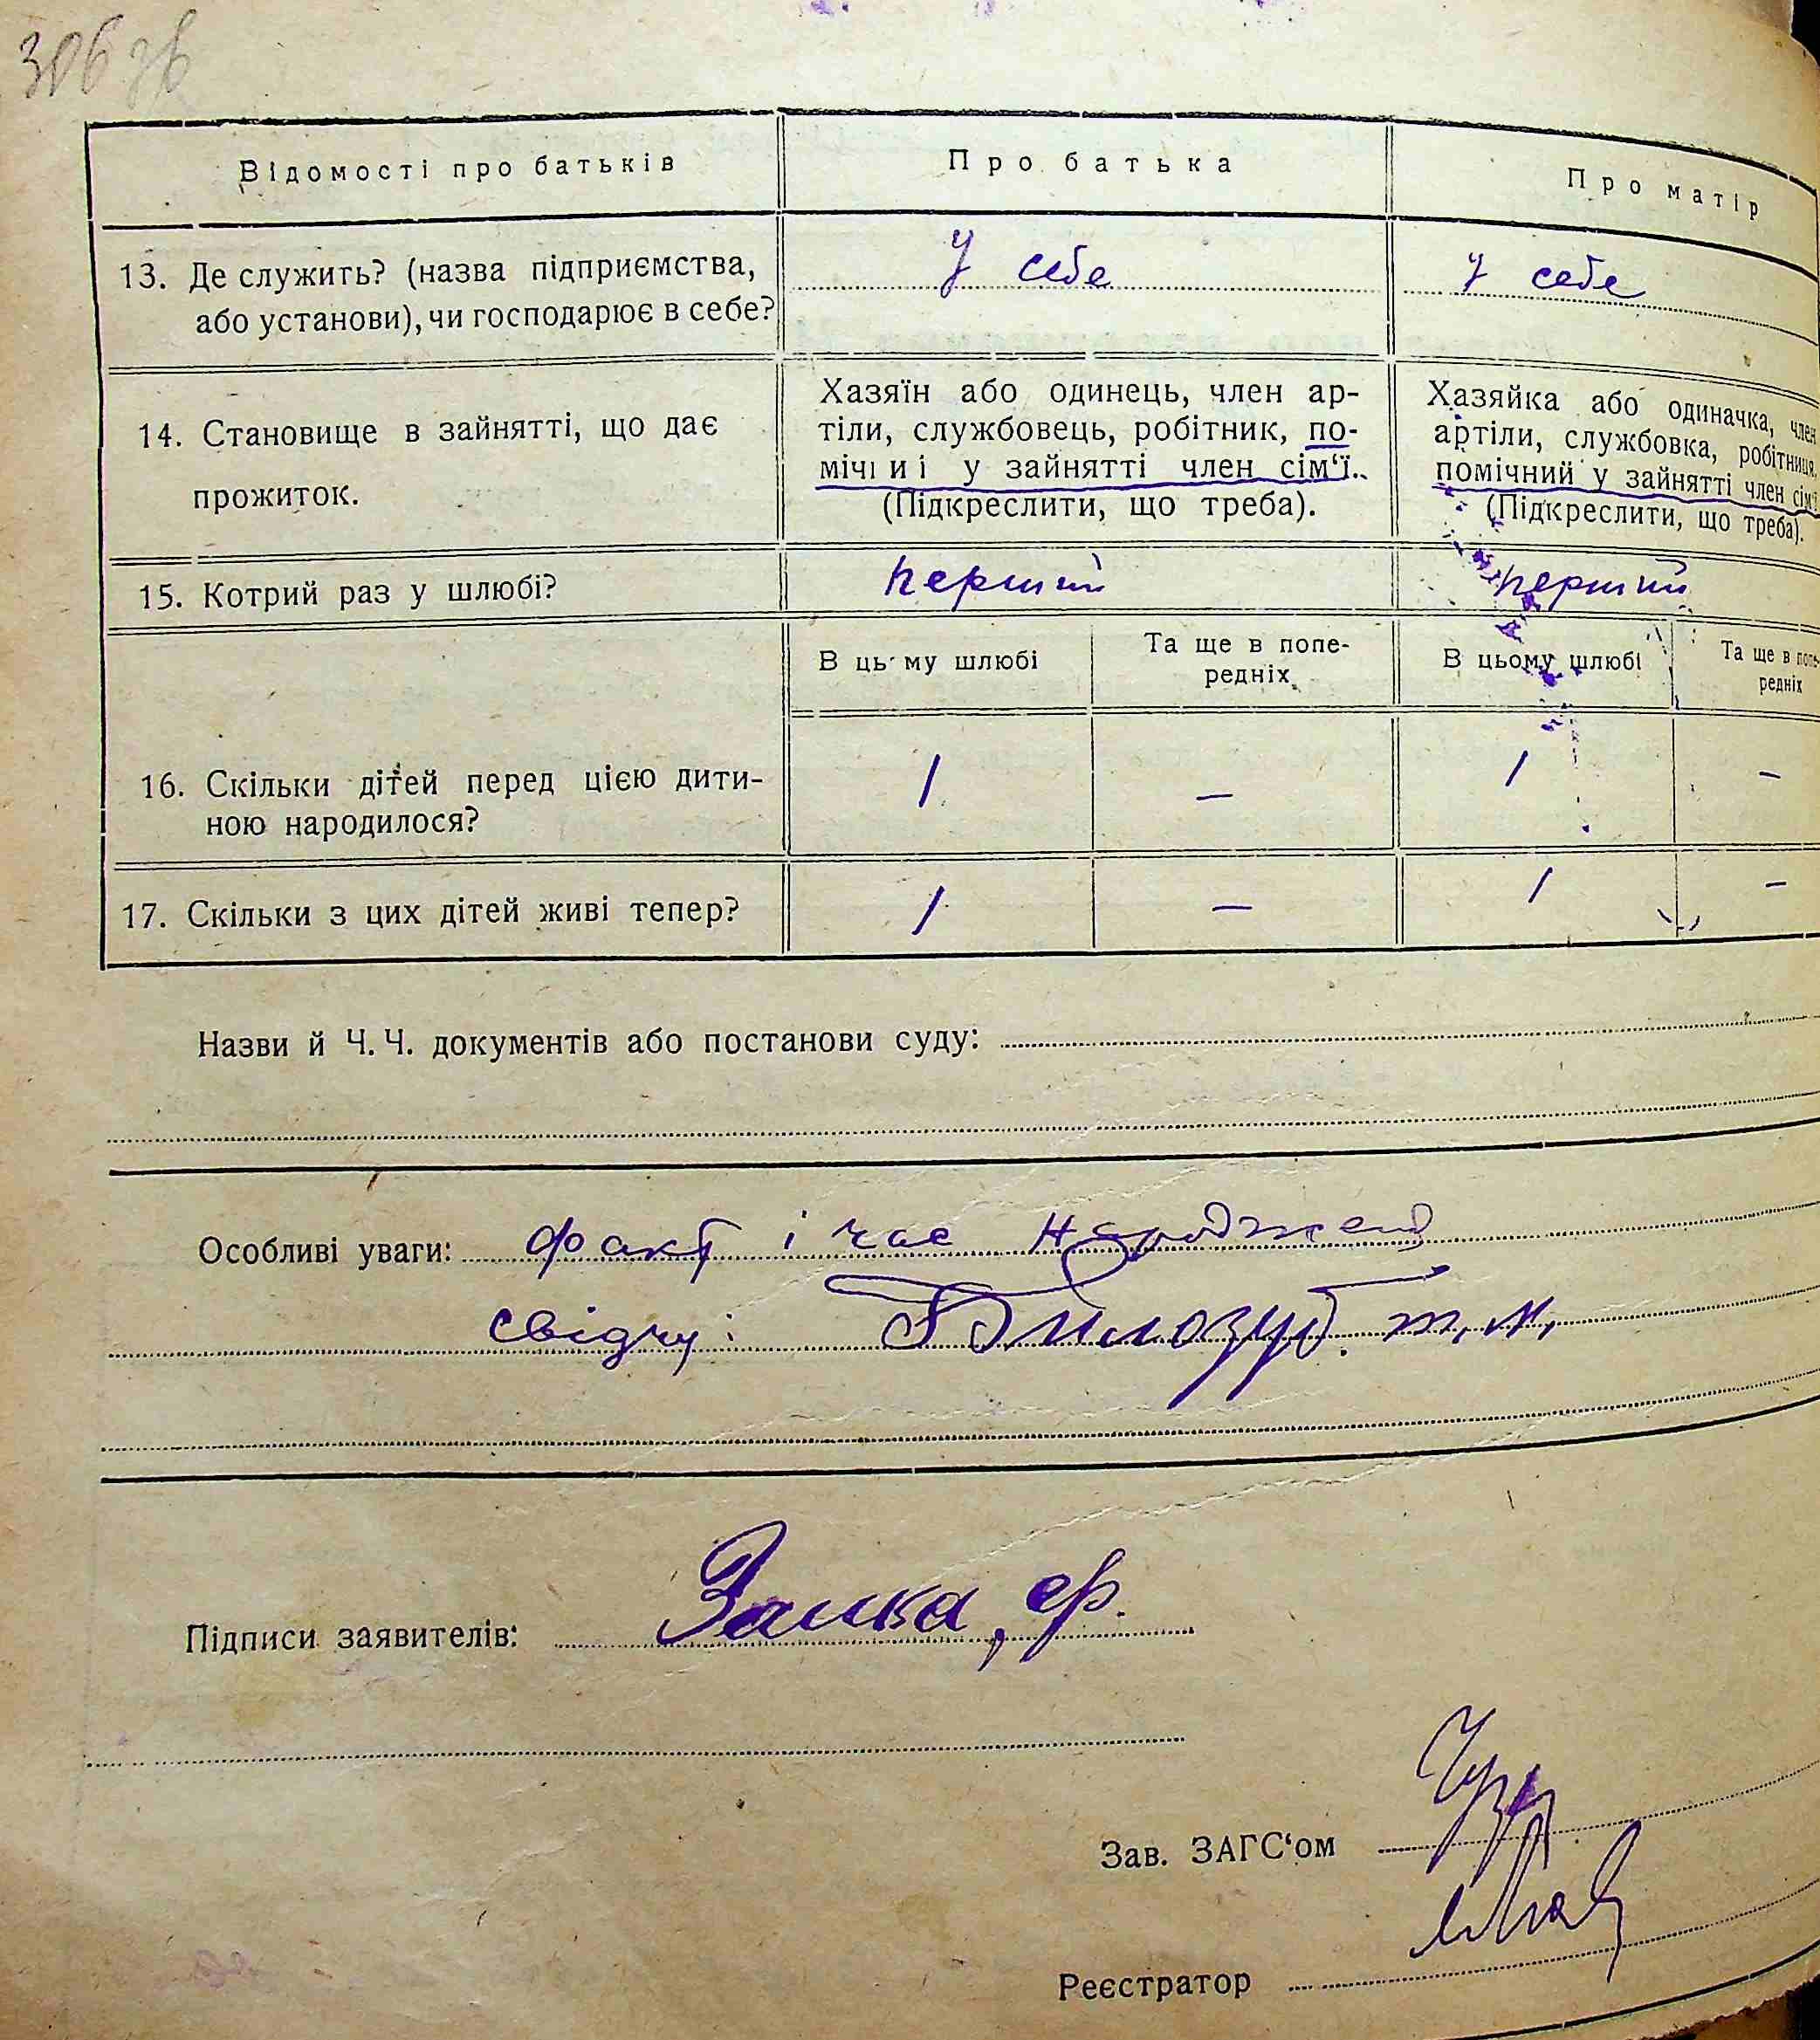 306 зв
Відомості про батьків
Про батька
Про матір
13. Де служить? (назва підприємства,
або установи), чи господарює в себе?
У себе
у себе
14. Становище в зайнятті, що дає
прожиток.
Хазяїн або одинець, член ар-
тіли, службовець, робітник, по-
мічниі у зайнятті член сім'ї.
(Підкреслити, що треба).
Хазяйка або одиначка, член
артіли, службовка, робітниця,
помічний у зайнятті член сім'ї
(Підкреслити, що треба).
15. Котрий раз у шлюбі?
перший
перший
В цьому шлюбі
Та ще в попе-
редніх
В цьому шлюбі
Та ще в попе-
редніх
16. Скільки дітей перед цією дити-
ною народилося?
1
—
1
—
17. Скільки з цих дітей живі тепер?
1
—
1
—
Назви й Ч. Ч. документів або постанови суду:
Особливі уваги: факт і час народженя
свідчу: Білозуб. т. н.
Підписи заявителів: Заика, еф.
Зав. ЗАГС'ом
Реєстратор